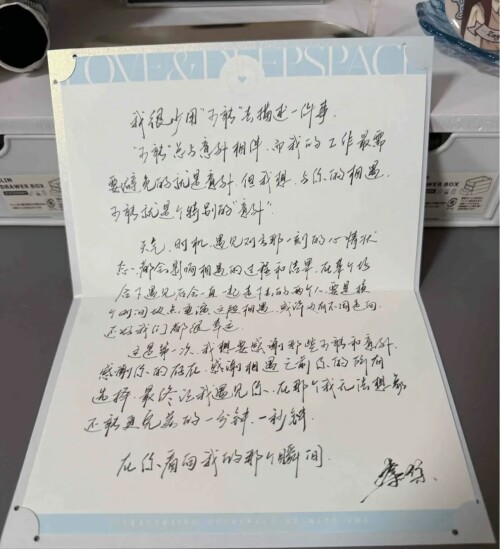 LOVE&DEEPSPACE
我很少用"可能"去描述一件事.
"可能"总与意外相伴,而我的工作最需
要避免的就是意外.但我想,与你的相遇,
可能就是个特别的"意外".
天气、时机、遇见对方那一刻的心情状
态,都会影响相遇的过程和结果.在某个场
合下遇见后会一直一起走下去的两个人,要是换
个时间地点重演这段相遇,或许也有不同走向.
还好我们都很幸运.
这是第一次,我想要感谢那些可能和意外.
感谢你的存在,感谢相遇之前你的所有
选择,最终让我遇见你,在那个我无法想象
还能更完美的一分钟、一秒钟.
在你看向我的那个瞬间.
黎深
LIN
DRAWER BOX
DRAWER BOX